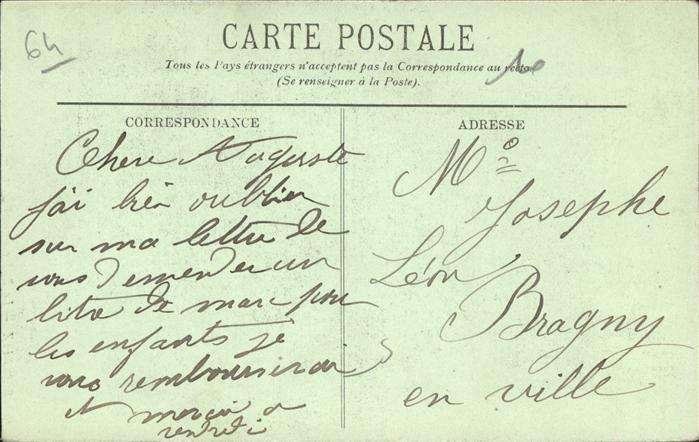 64
CARTE POSTALE
Tous les Pays étrangers n'acceptent pas la Correspondance au recto
(Se renseigner à la Poste).
CORRESPONDANCE
Chere Auguste
j'ai bien oublier
sur ma lettre de
vous demender un
litre de marc pour
les enfants je
vous rembourserai
et merci a
vendredi
ADRESSE
Mo
Josephe
Léon
Bragny
en ville